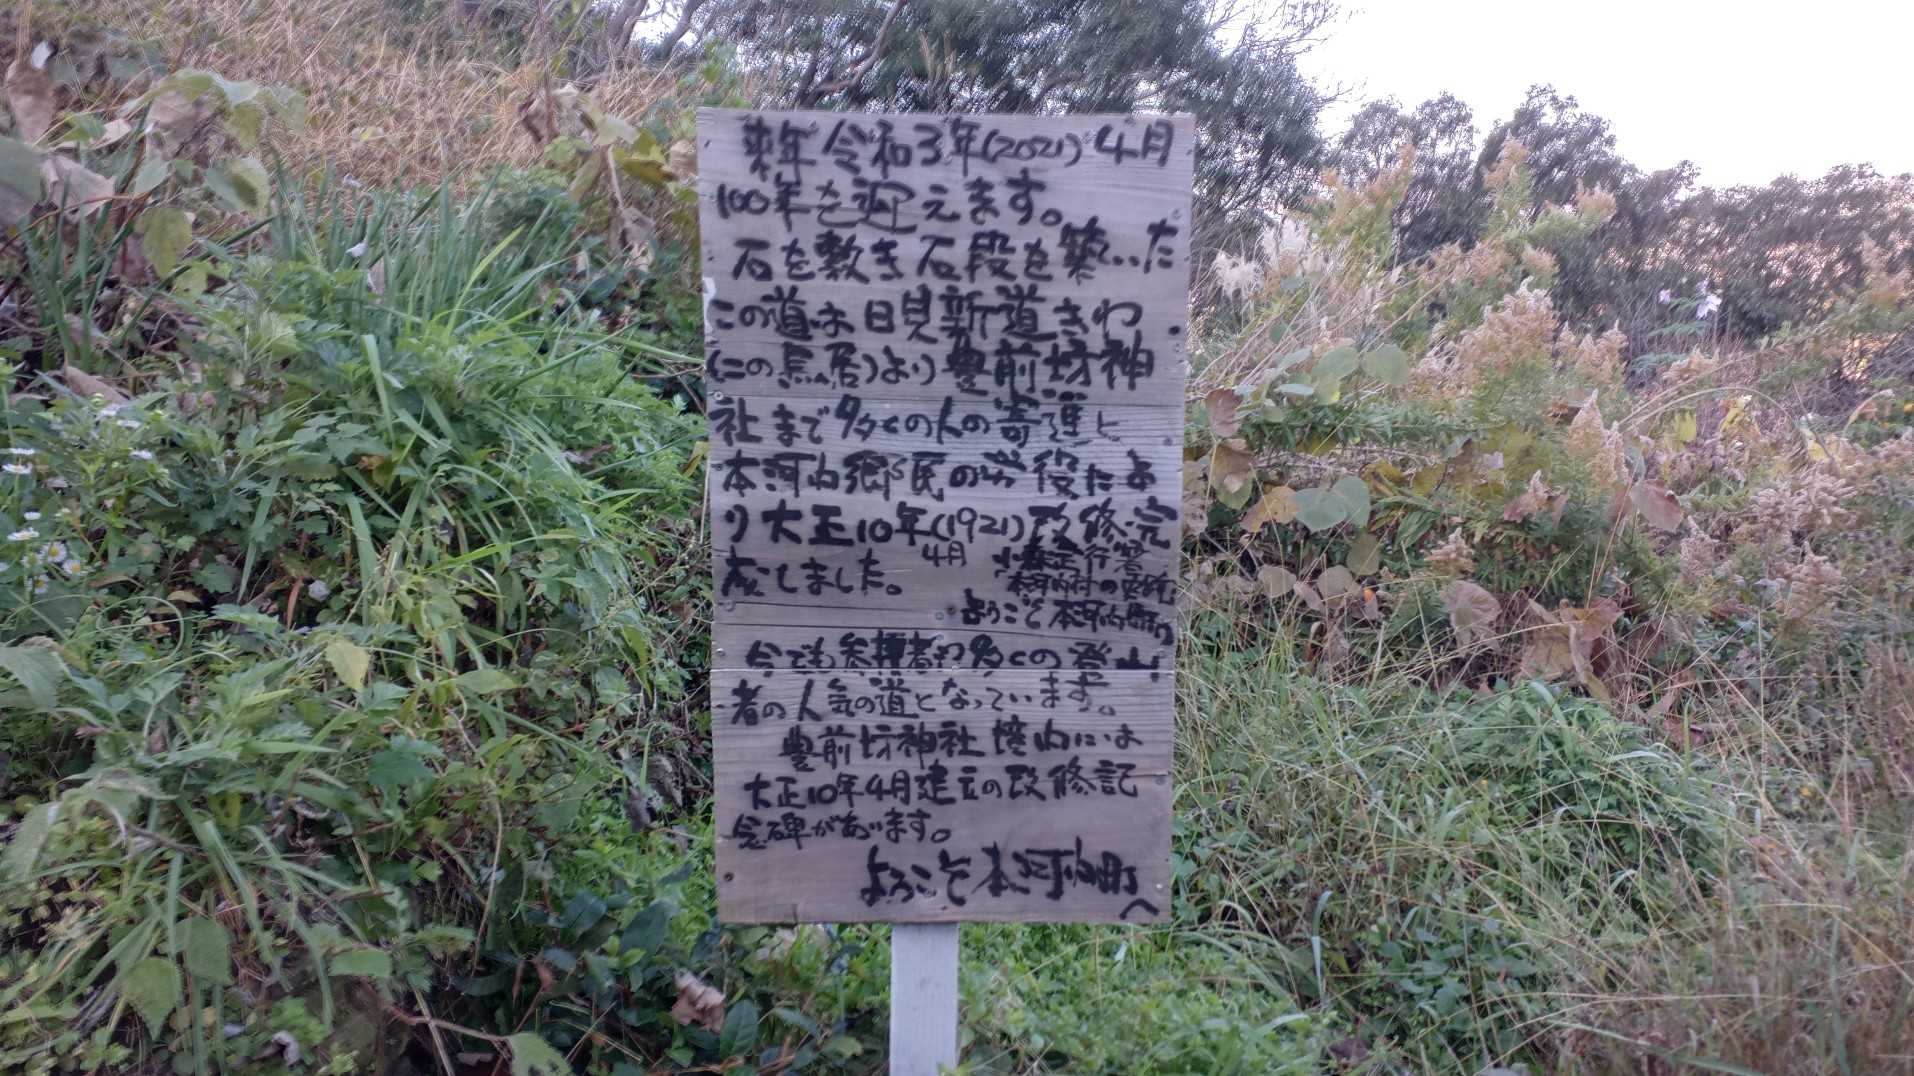 来年令和3年(2021)4月
100年を迎えます。
石を敷き石段を築いた
この道は日見新道きわ
(この鳥居)より豊前坊神
社まで多くの人の寄進と
本河内郷民の労役によ
り大正10年(1921)改修完
4月
成しました。
本河内村の史跡
ようこそ本河内町
今でも参拝者や多くの登山
者の人気の道となっています。
豊前坊神社境内には
大正10年4月建立の改修記
念碑があります。
ようこそ本河内町
へ